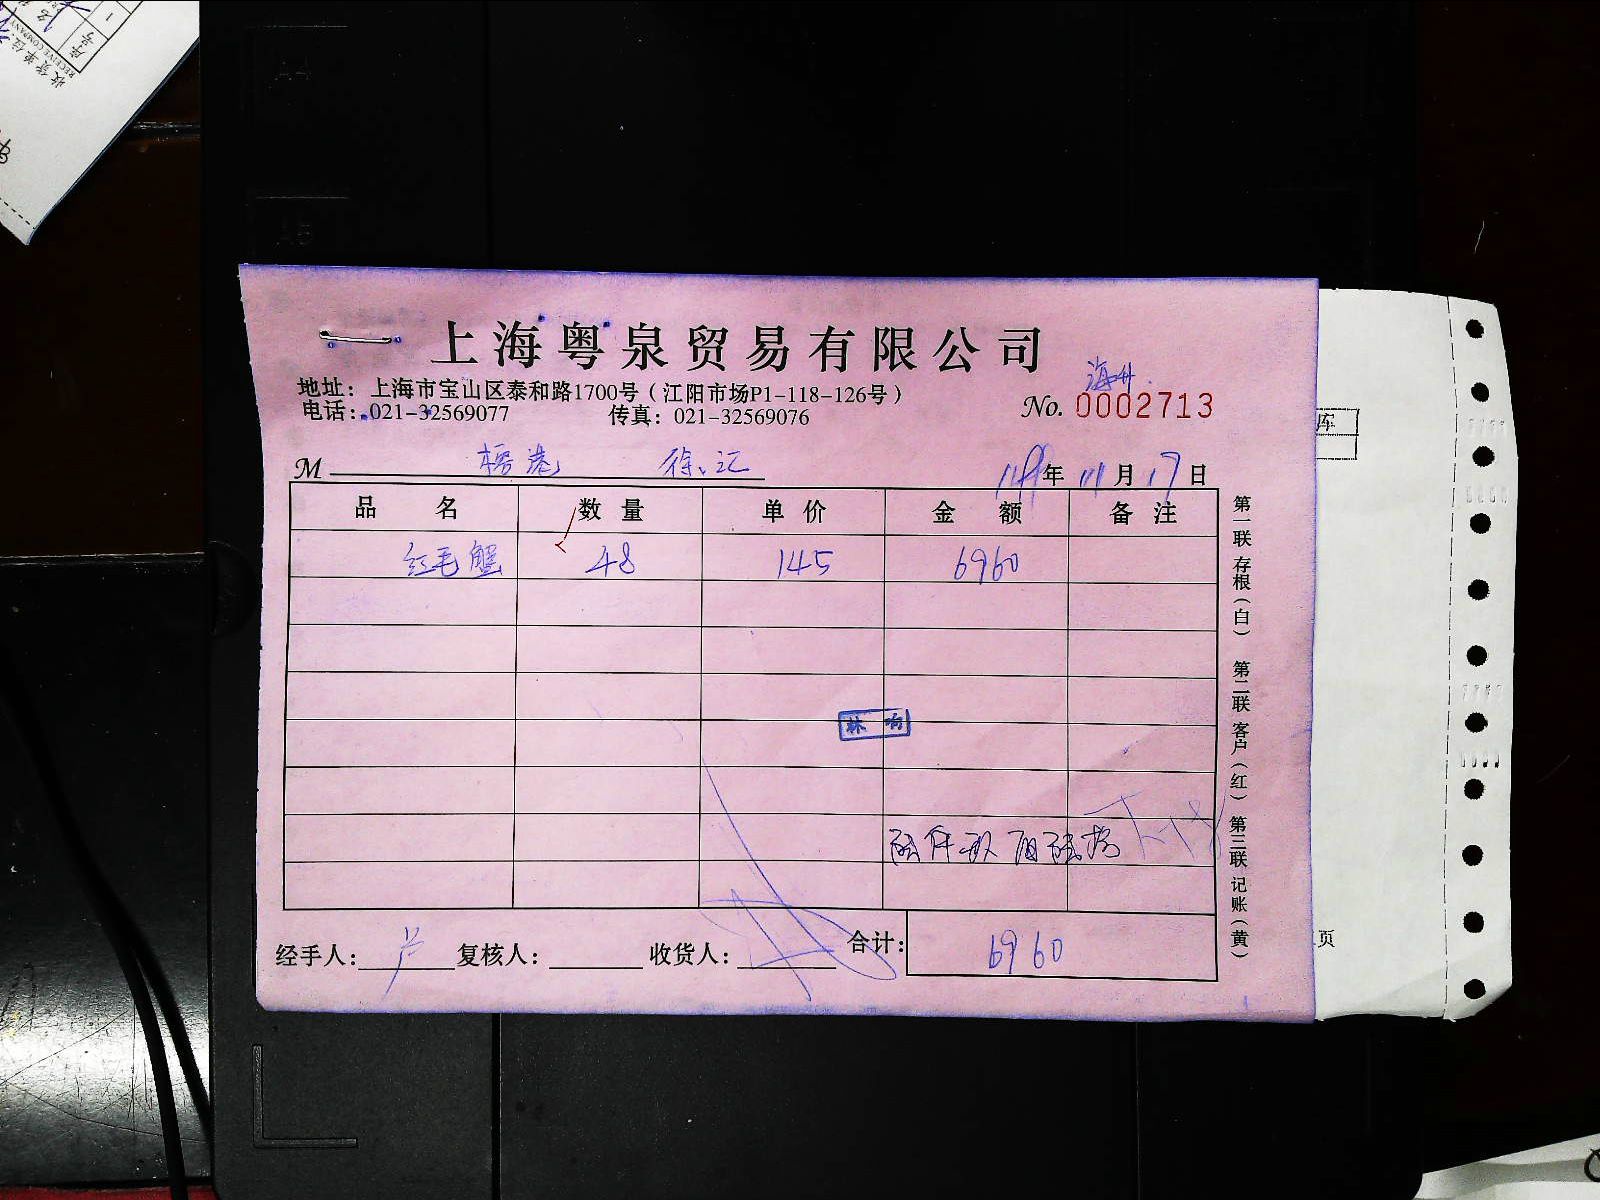 序号
收货单位
RECEIVE COMPANY
上海粤泉贸易有限公司
地址：上海市宝山区泰和路1700号（江阳市场P1-118-126号）
电话：021-32569077 传真：021-32569076
No. 0002713
M 徐汇
年 11月17日
品名 数量 单价 金额 备注
红毛蟹 48 145 6960
经手人： 复核人： 收货人： 合计：6960
第一联 存根（白） 第二联 客户（红） 第三联 记账（黄）
库
页